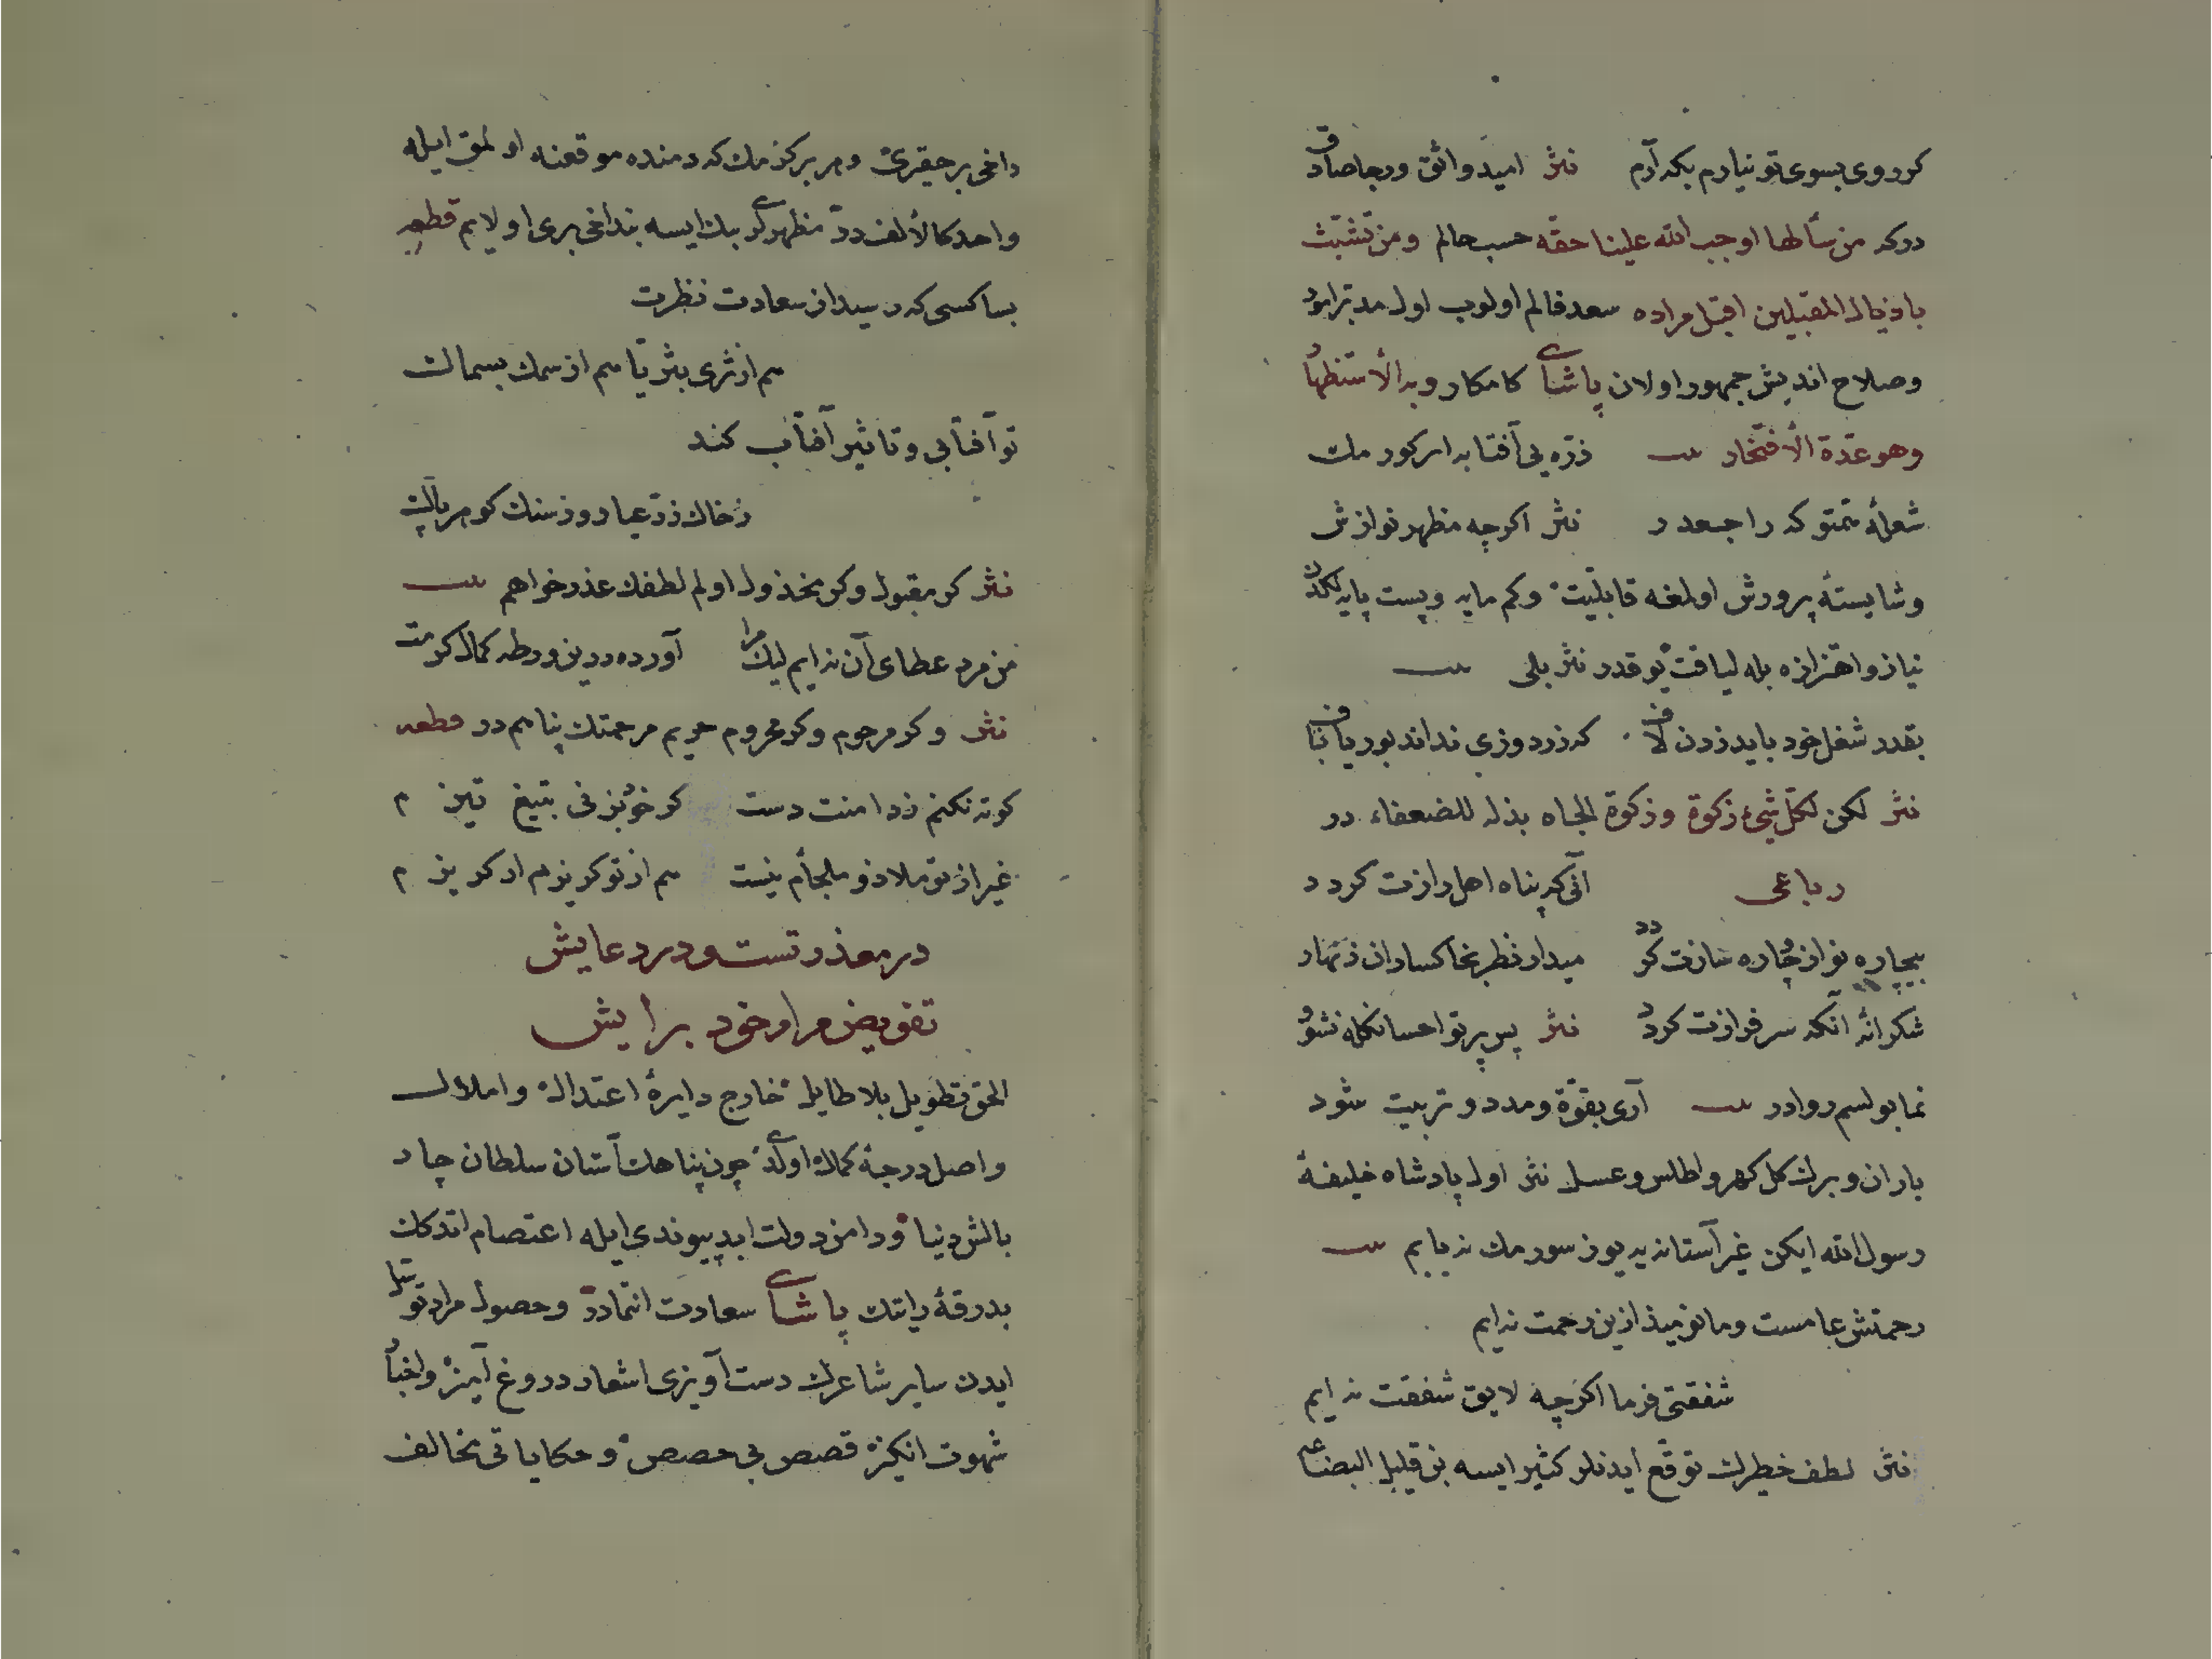 کر روی بسوی تو نیارم بکه آرم نثر امید واثق ورجا صادق
درکه من سألها اوجب الله علینا حقه حسب حالم ومن تشبث
باذیال المقبلین اقبل مراده سعد فالم اولوب اول مدبر امور
وصلاح اندیش جمهور اولان پاشای کامکار وبه الأستظهار
وهو عدة الأفتخار بیت ذره یی آفتابه ایر کورمك
شعلهٔ متوکه راجعدر نثر اکرچه مظهر نوازش
وشایستهٔ پرورش اولمغه قابلیت وکم مایه وپست پایه لکدن
نیاز واهتزازه بله لیاقت یوقدر نثر بلی بیت
بقدر شغل خود باید زدن لاف که زردوزی نداند بوریاباف
نثر لکن لکل شئ زکوة وزکوة الجاه بذله للضعفاء در
رباعی آنی که پناه اهل رازت کردد
بیچاره نواز چاره سازت کردد میدار نظر بخاکساران زنهار
شکرانهٔ آنکه سرفرازت کرد نثر پس پرتو احسانکله نشو
نما بولسم روادر بیت آری بقوة ومدد وتربیت شود
باران وبرك کل کهر واطلس وعسل نثر اول پادشاه خلیفهٔ
رسول الله ایکن غیر آستانه یه یوز سورمك نه یابم بیت
رحمتش عامست وما نومید ازین رحمت نه ایم
شفقتی فرما اکرچه لایق شفقت نه ایم
نثر لطف خطیرك توقع ایدنلر کثیر ایسه بن قلیل البضاعه
داخی بر حقیری وهر برکزمك که دمنده موقعنه اولمق ایله
واحد کالألف در مظهرلری بیك ایسه بنداخی بری اولایم قطعه
بسا کسی که رسید از سعادت نظرت
هم از ثری بثریا هم از سمك بسمالت
تو آفتابی وتاثیر آفتاب کند
زخاك زر عیار وز سنك کوهر پالت
نثر کر مقبول وکر مخذول اولم لطفك عذر خواهم بیت
من مرد عطای آن نه ایم لیك مرا آورده درین ورطه کمال کرمت
نثر وکر مرحوم وکر محروم حریم مرحمتك پناهم در قطعه
کوته نکنم ز دامنت دست کر خود بزنی بتیغ تیزم
غیر از تو ملاذ وملجأم نیست هم از تو کریزم ار کریزم
در معذرتست ودر دعایش
تفویض مراد خود برایش
الحق تطویل بلا طایل خارج دایرهٔ اعتدال واملال
واصل درجهٔ کمال اولدی چون پناهك آستان سلطان چار
بالش دنیا ودامن دولت ابد پیوندی ایله اعتصام اتدکك
بدرقهٔ رایتك پاشای سعادت انتمادر وحصول مراد توسل
ایدن سایر شاعرك دست آویزی اشعار دروغ آمیز واخبار
شهوت انکیز قصص بی حصص وحکایاتی مخالف